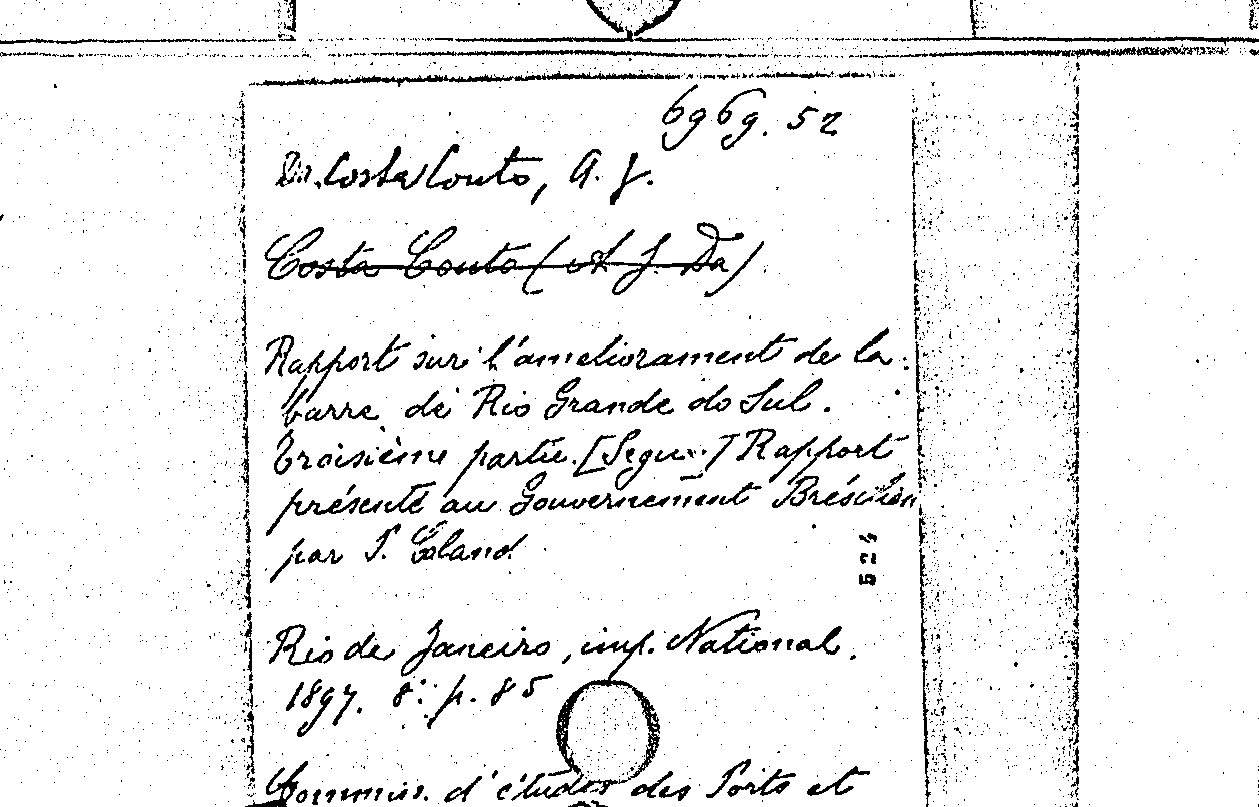 6969. 52
Da Costa Couto, A. J.
Costa Couto (A J. Da)
Rapport sur l'ameliorament de la
barre de Rio Grande do Sul.
Troisième partie. [Segue] Rapport
présenté au Gouvernement Brésilien
par P. Caland
524
Rio de Janeiro, imp. National.
1897. 8.° p. 85
Commiss. d'études des Ports et